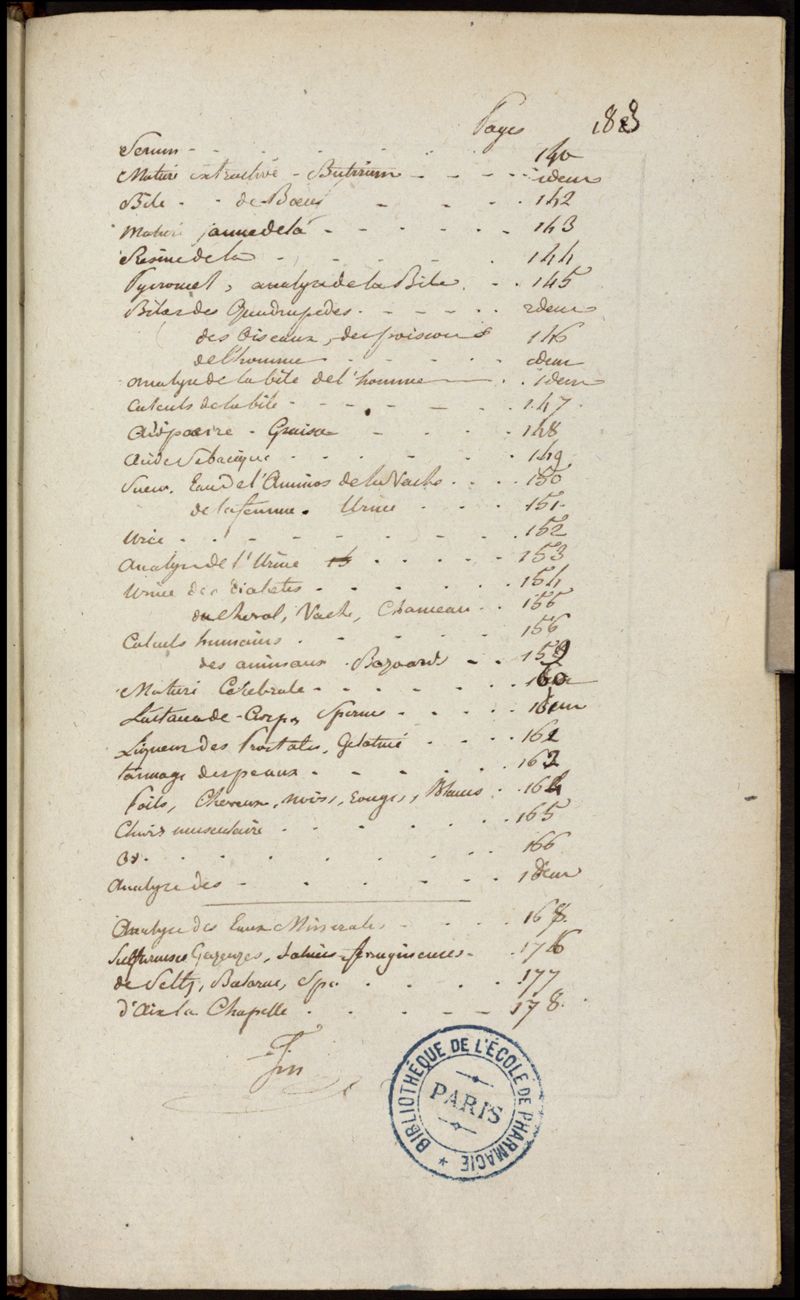 Pages 183
Serum - - - - - - 140
Matiere extractive - Butirum - - - - idem
Bile - - de Boeuf - - - 142
Matiere jaune de la - - - - - 143
Resine de la - - - - 144
Pycromel, analyse de la Bile - - 145
Biles des Quadrupedes - - - - - idem
des Oiseaux, des poissons 146
de l'homme - - - - idem
analyse de la bile de l'homme - - idem
Calculs de la bile - - - - - - 147
Adipocire - Graisse - - - 148
acide Sebacique - - - - - 149
Sueur. Eau de l'Amnios de la Vache - - - 150
de la femme. Urine - - - 151
Urée - - - - - - - 152
Analyse de l'Urine - - - - 153
Urine des diabetes - - - - - 154
du Cheval, Vache, Chameau - - 155
Calculs humains - - - - - 156
des animaux Bezoards - - 159
Matiere Cérébrale - - - - - 160
Sperme - - - - idem
Liqueur des Prostates, Gelatine - - - 161
tannage des peaux - - - - 162
Poils, Cheveux, noirs, rouges, Blancs - 164
Chair musculaire - - - - - 165
Os - - - - - - - 166
Analyse des - - - - - idem
Analyse des Eaux Minerales - - - 168
Sulfureuses Gazeuzes, Salines ferugineuses - 176
de Seltz, Balaruc, Spa - - - - 177
d'Aix la Chapelle - - - - - 178
Fin
BIBLIOTHÈQUE DE L'ÉCOLE DE PHARMACIE
PARIS